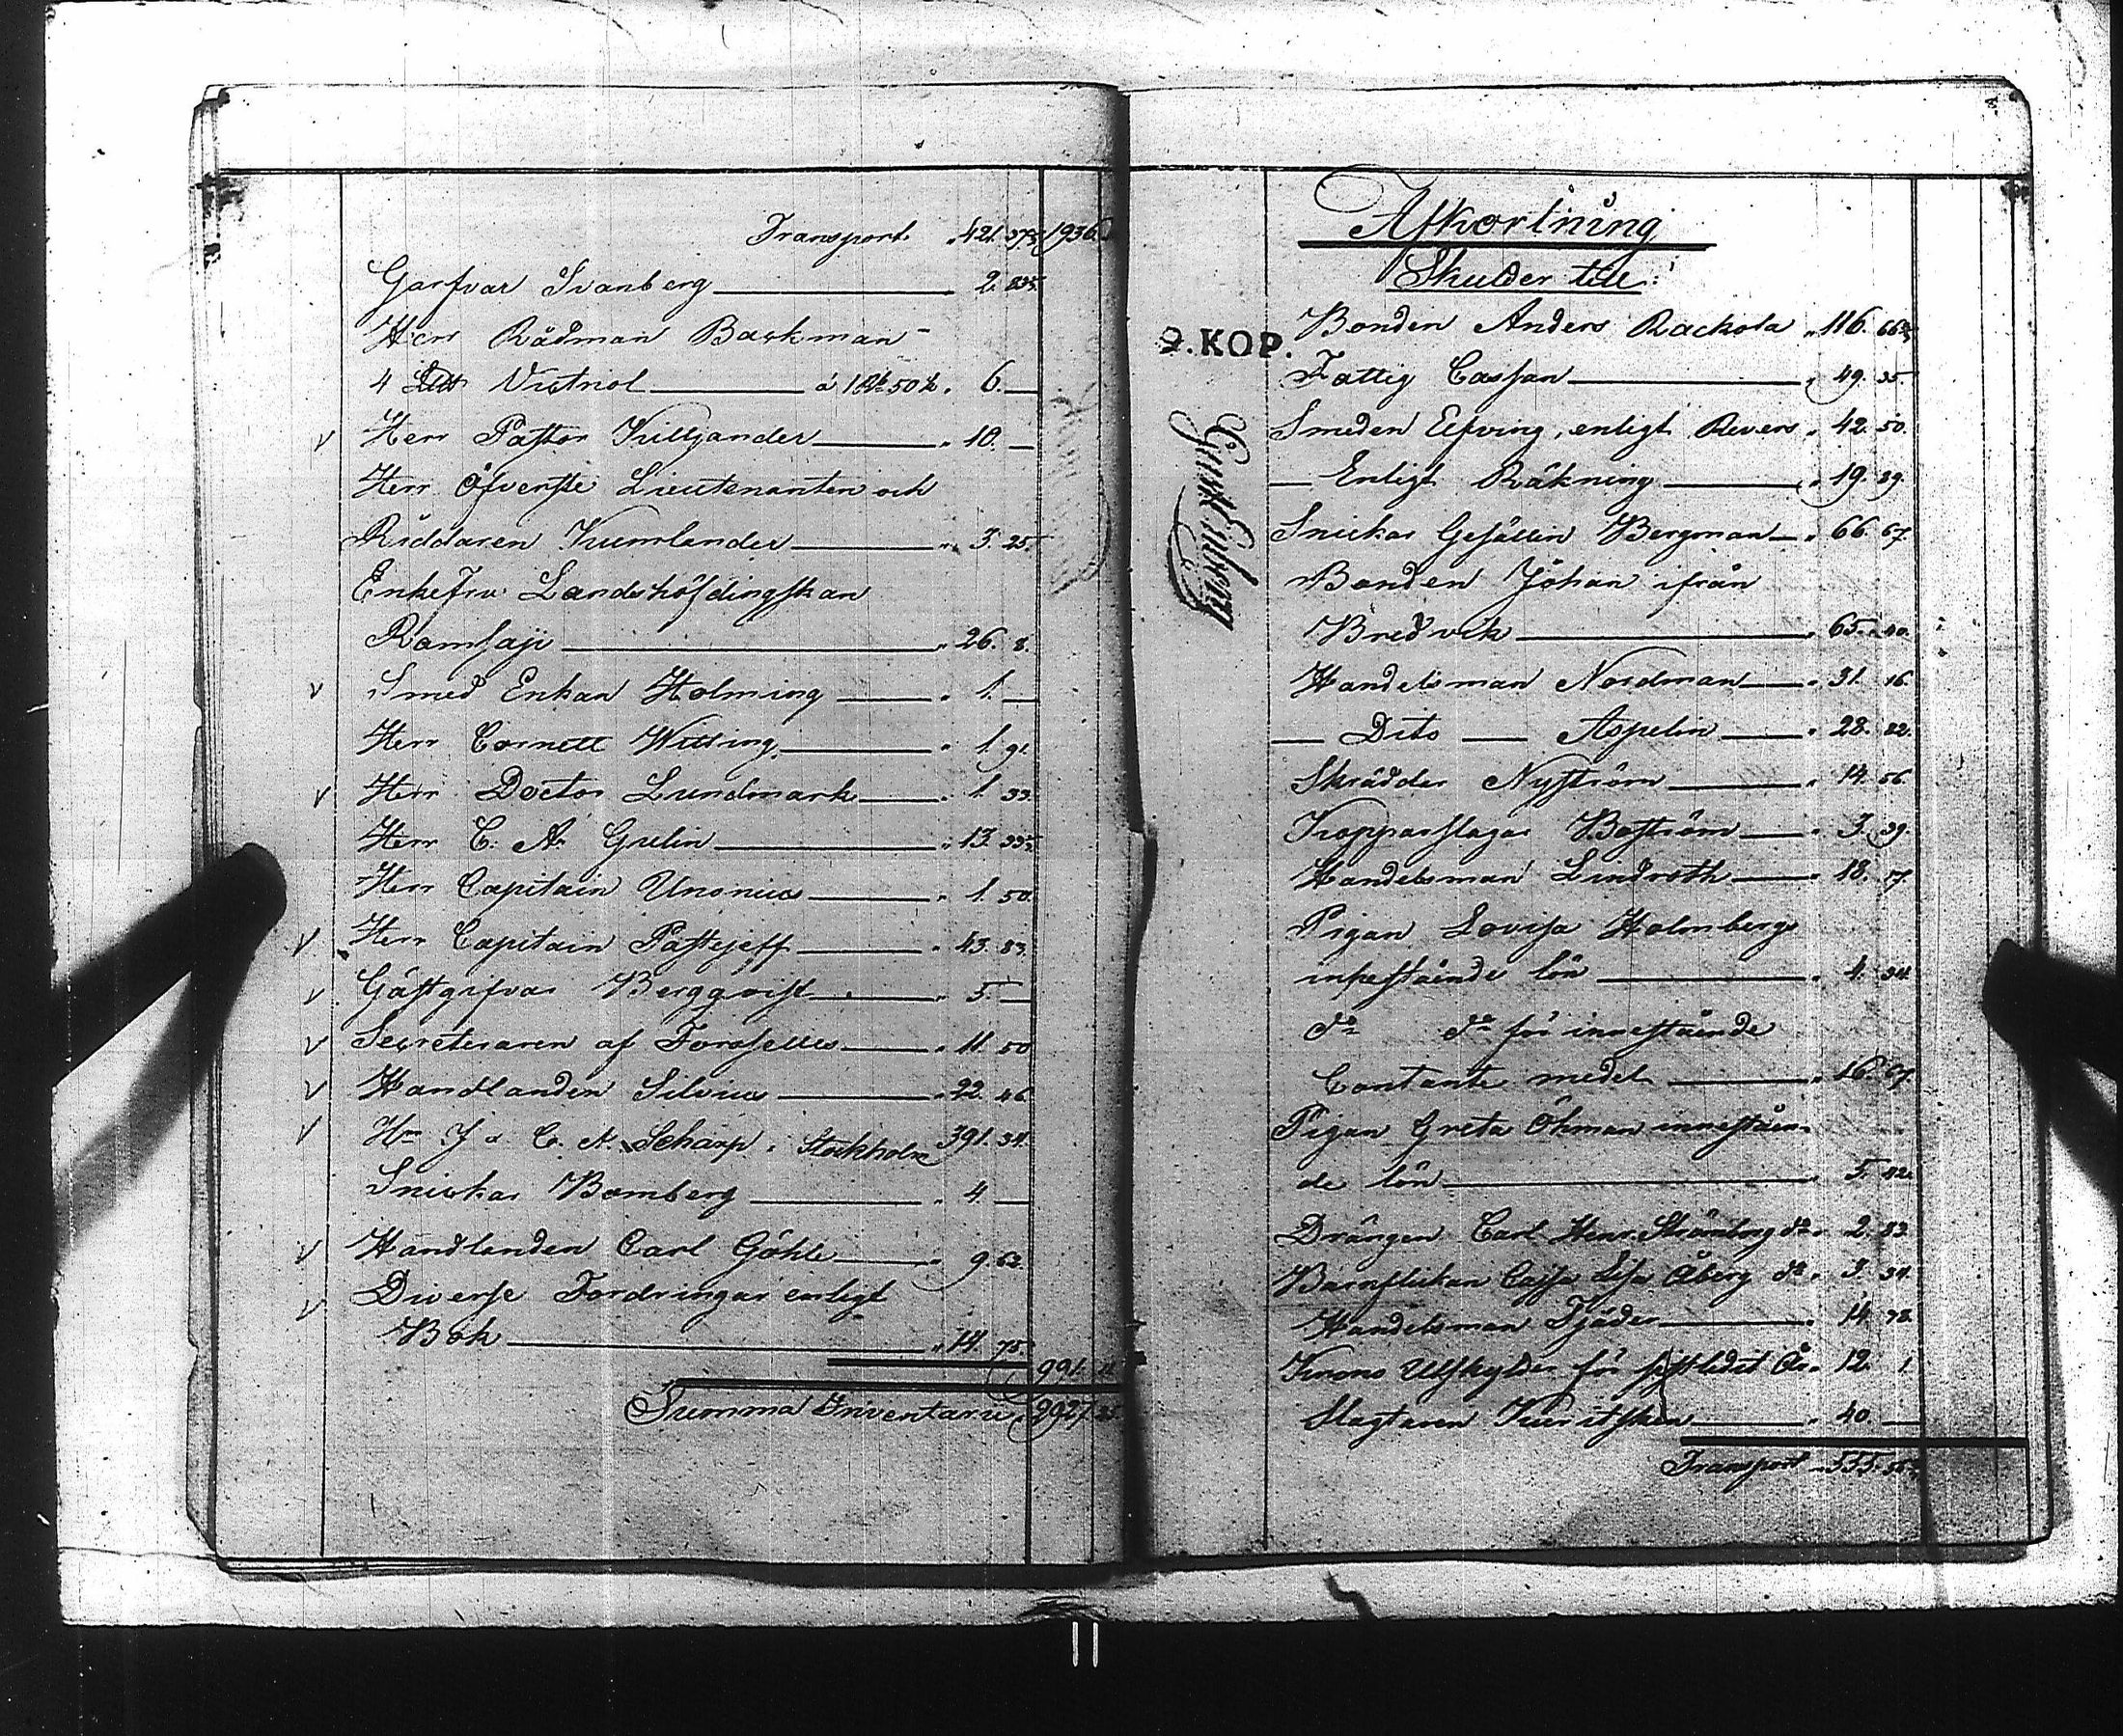 Transport " 421. 37 1936.
Garfvar Svanberg 2. 83
Herr Rådman Backman
4 Victriol á 1 R 50 k " 6. —
√ Herr Pastor Killjander " 10. —
Herr Öfverste Lieutenanten och
Riddaren Kumlander " 3. 25.
Enkefru Landshöfdingskan
Ramsaji " 26. 8.
√ Smed Enkan Holming " 1. —
Herr Cornett Witting " 1. 91
√ Herr Doctor Lundmark " 1. 33.
Herr C. A. Grelin " 13. 33
Herr Capitain Unonius " 1. 50.
√ Herr Capitain Pastejeff " 43. 83.
√ Gästgifvar Bergqvist " 5. —
√ Secreteraren af Forselles " 11. 50
√ Handlanden Silvius " 22. 46.
√ Hrr J & C. A. Scharp i Stockholm 391. 34.
Snickar Bomberg " 4 —
√ Handlanden Carl Göhle " 9. 62.
√ Diverse Fordringar enligt
Bok " 14. 75.
991. 11
Summa Inventarii 2927. 25.
Afkortning
Skulder till:
2. KOP.
Bonden Anders Rackola " 116. 66
Fattig Cassan " 49. 35.
Smeden Elfving, enligt Revers " 42. 50.
— Enligt Räkning " 19. 39.
Snickar Gesällen Bergman " 66. 67.
Bonden Johan ifrån
Bredvik " 65. 40.
Handelsman Nordman " 31. 16.
— Dito — Aspelin " 28. 82.
Skrädder Nyström " 14. 56.
Kopparslagar Boström " 3. 39.
Handelsman Lindroth " 18. 17.
Pigan Lovisa Holmberg
innestående lön " 4. 34.
do do för innestående
Contante medel " 16. 67.
Pigan Greta Öhman innestån-
de lön " 5. 42.
Drängen Carl Henr. Strömberg do " 2. 83.
Barnflickan Cajsa Lisa Åberg do " 3. 34.
Handelsman Tjäder " 14. 78.
Krono Utskylder för sistledit År " 12. 1.
Slagtaren Kuritsken " 40 —
Transport " 555. 56